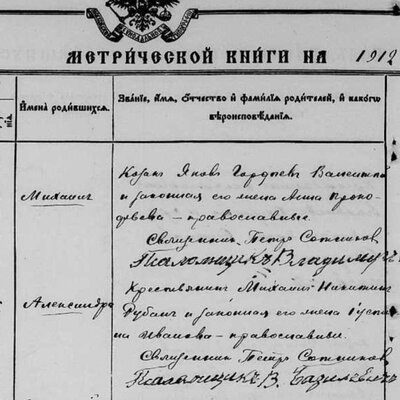 МЕТРИЧЕСКОЙ КНИГИ НА 1912
Имена родившихся.
Званіе, имя, отчество и фамилія родителей, и какого
вѣроисповѣданія.
Михаилъ
Козакъ Яковъ Гордѣевъ
и законная его жена Анна Проко-
фьева – православные.
Священникъ Петръ Сотников
Псаломщикъ Владимиръ
Александра
Крестьянинъ Михаилъ Никитинъ
Рубанъ и законная его жена Іуста-
на Иванова – православные.
Священникъ Петръ Сотников
Псаломщикъ В. Базилевичъ